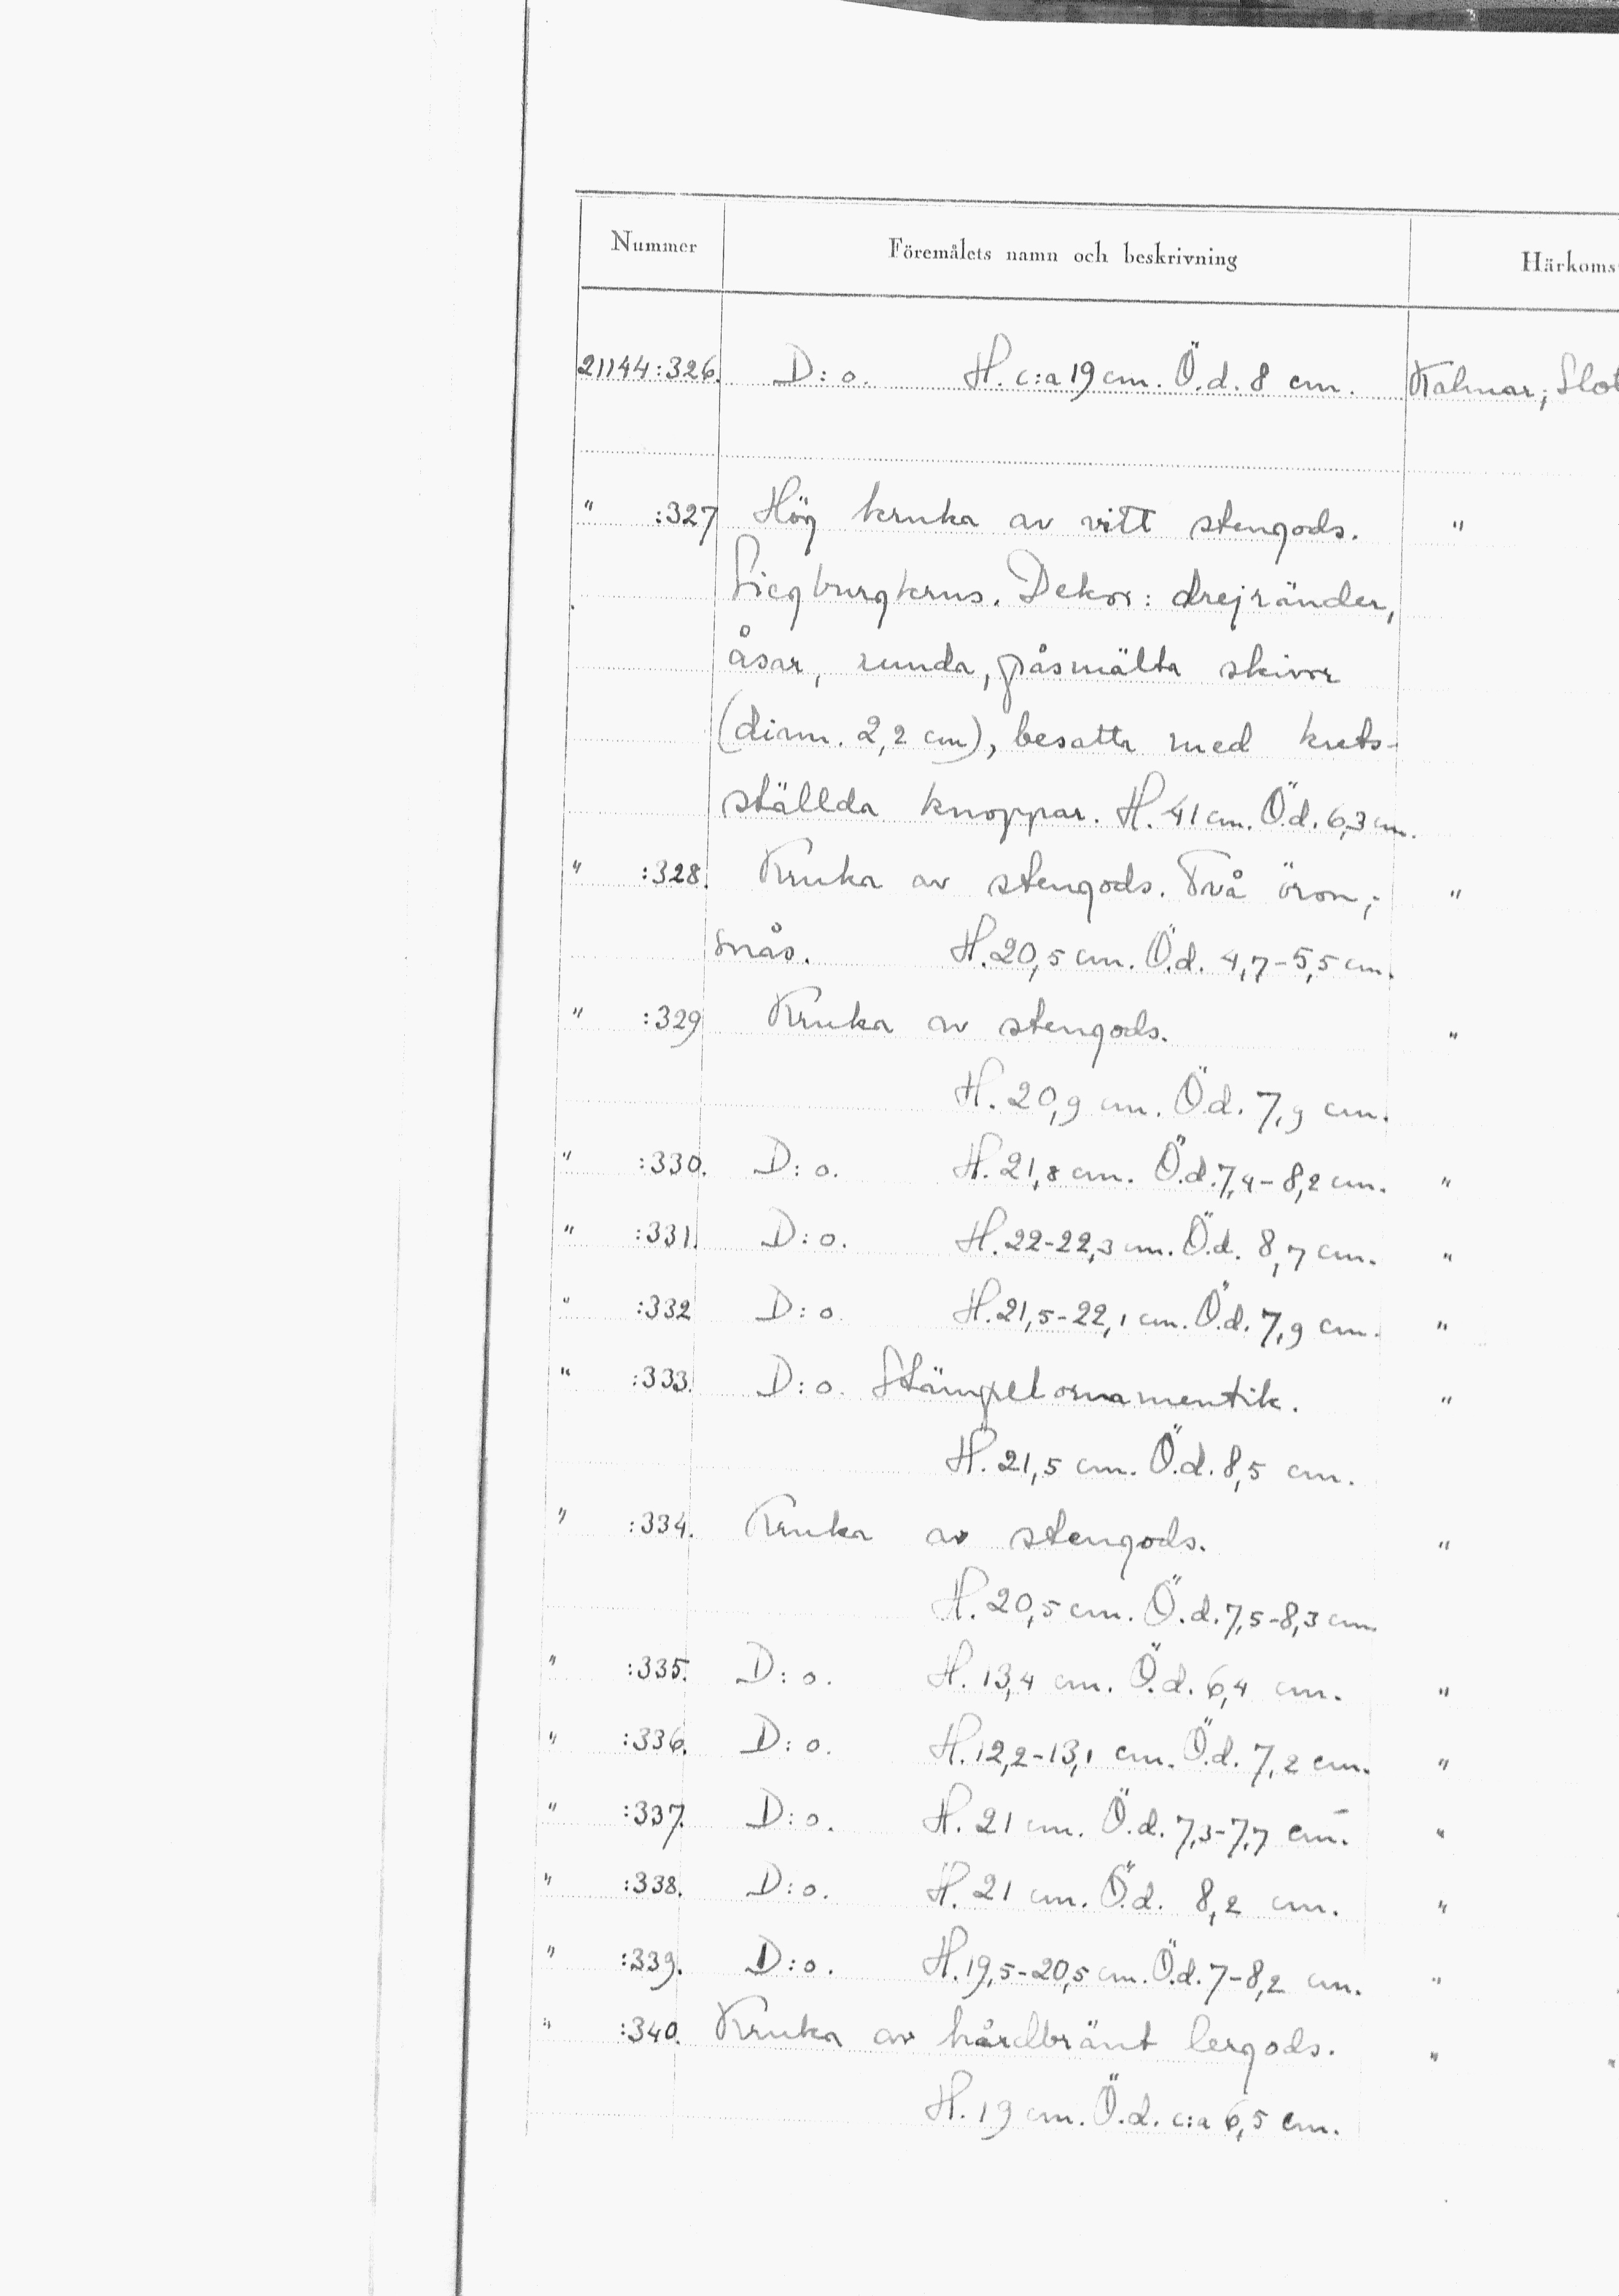 Nummer Föremålets namn och beskrivning Härkoms
21144:326. D:o. H. c:a 19 cm. Ö.d. 8 cm. Kalmar; Slot
" :327 Hög kruka av vitt stengods. "
Siegburgkrus. Dekor: drejränder,
åsar, runda, påsmälta skivor
(diam. 2,2 cm), besatta med krets-
ställda knoppar. H. 41 cm. Ö.d. 6,3 cm.
" :328. Kruka av stengods. Två öron; "
snås. H. 20,5 cm. Ö.d. 4,7-5,5 cm.
" :329 Kruka av stengods. "
H. 20,9 cm. Ö.d. 7,9 cm.
" :330. D:o. H. 21,8 cm. Ö.d. 7,4-8,2 cm. "
" :331. D:o. H. 22-22,3 cm. Ö.d. 8,7 cm. "
" :332 D:o. H. 21,5-22,1 cm. Ö.d. 7,9 cm. "
" :333. D:o. Stämpelornamentik. "
H. 21,5 cm. Ö.d. 8,5 cm.
" :334. Kruka av stengods. "
H. 20,5 cm. Ö.d. 7,5-8,3 cm.
" :335. D:o. H. 13,4 cm. Ö.d. 6,4 cm. "
" :336. D:o. H. 12,2-13,1 cm. Ö.d. 7,2 cm. "
" :337. D:o. H. 21 cm. Ö.d. 7,3-7,7 cm. "
" :338. D:o. H. 21 cm. Ö.d. 8,2 cm. "
" :339. D:o. H. 19,5-20,5 cm. Ö.d. 7-8,2 cm. "
" :340. Kruka av hårdbränt lergods. " "
H. 19 cm. Ö.d. c:a 6,5 cm.